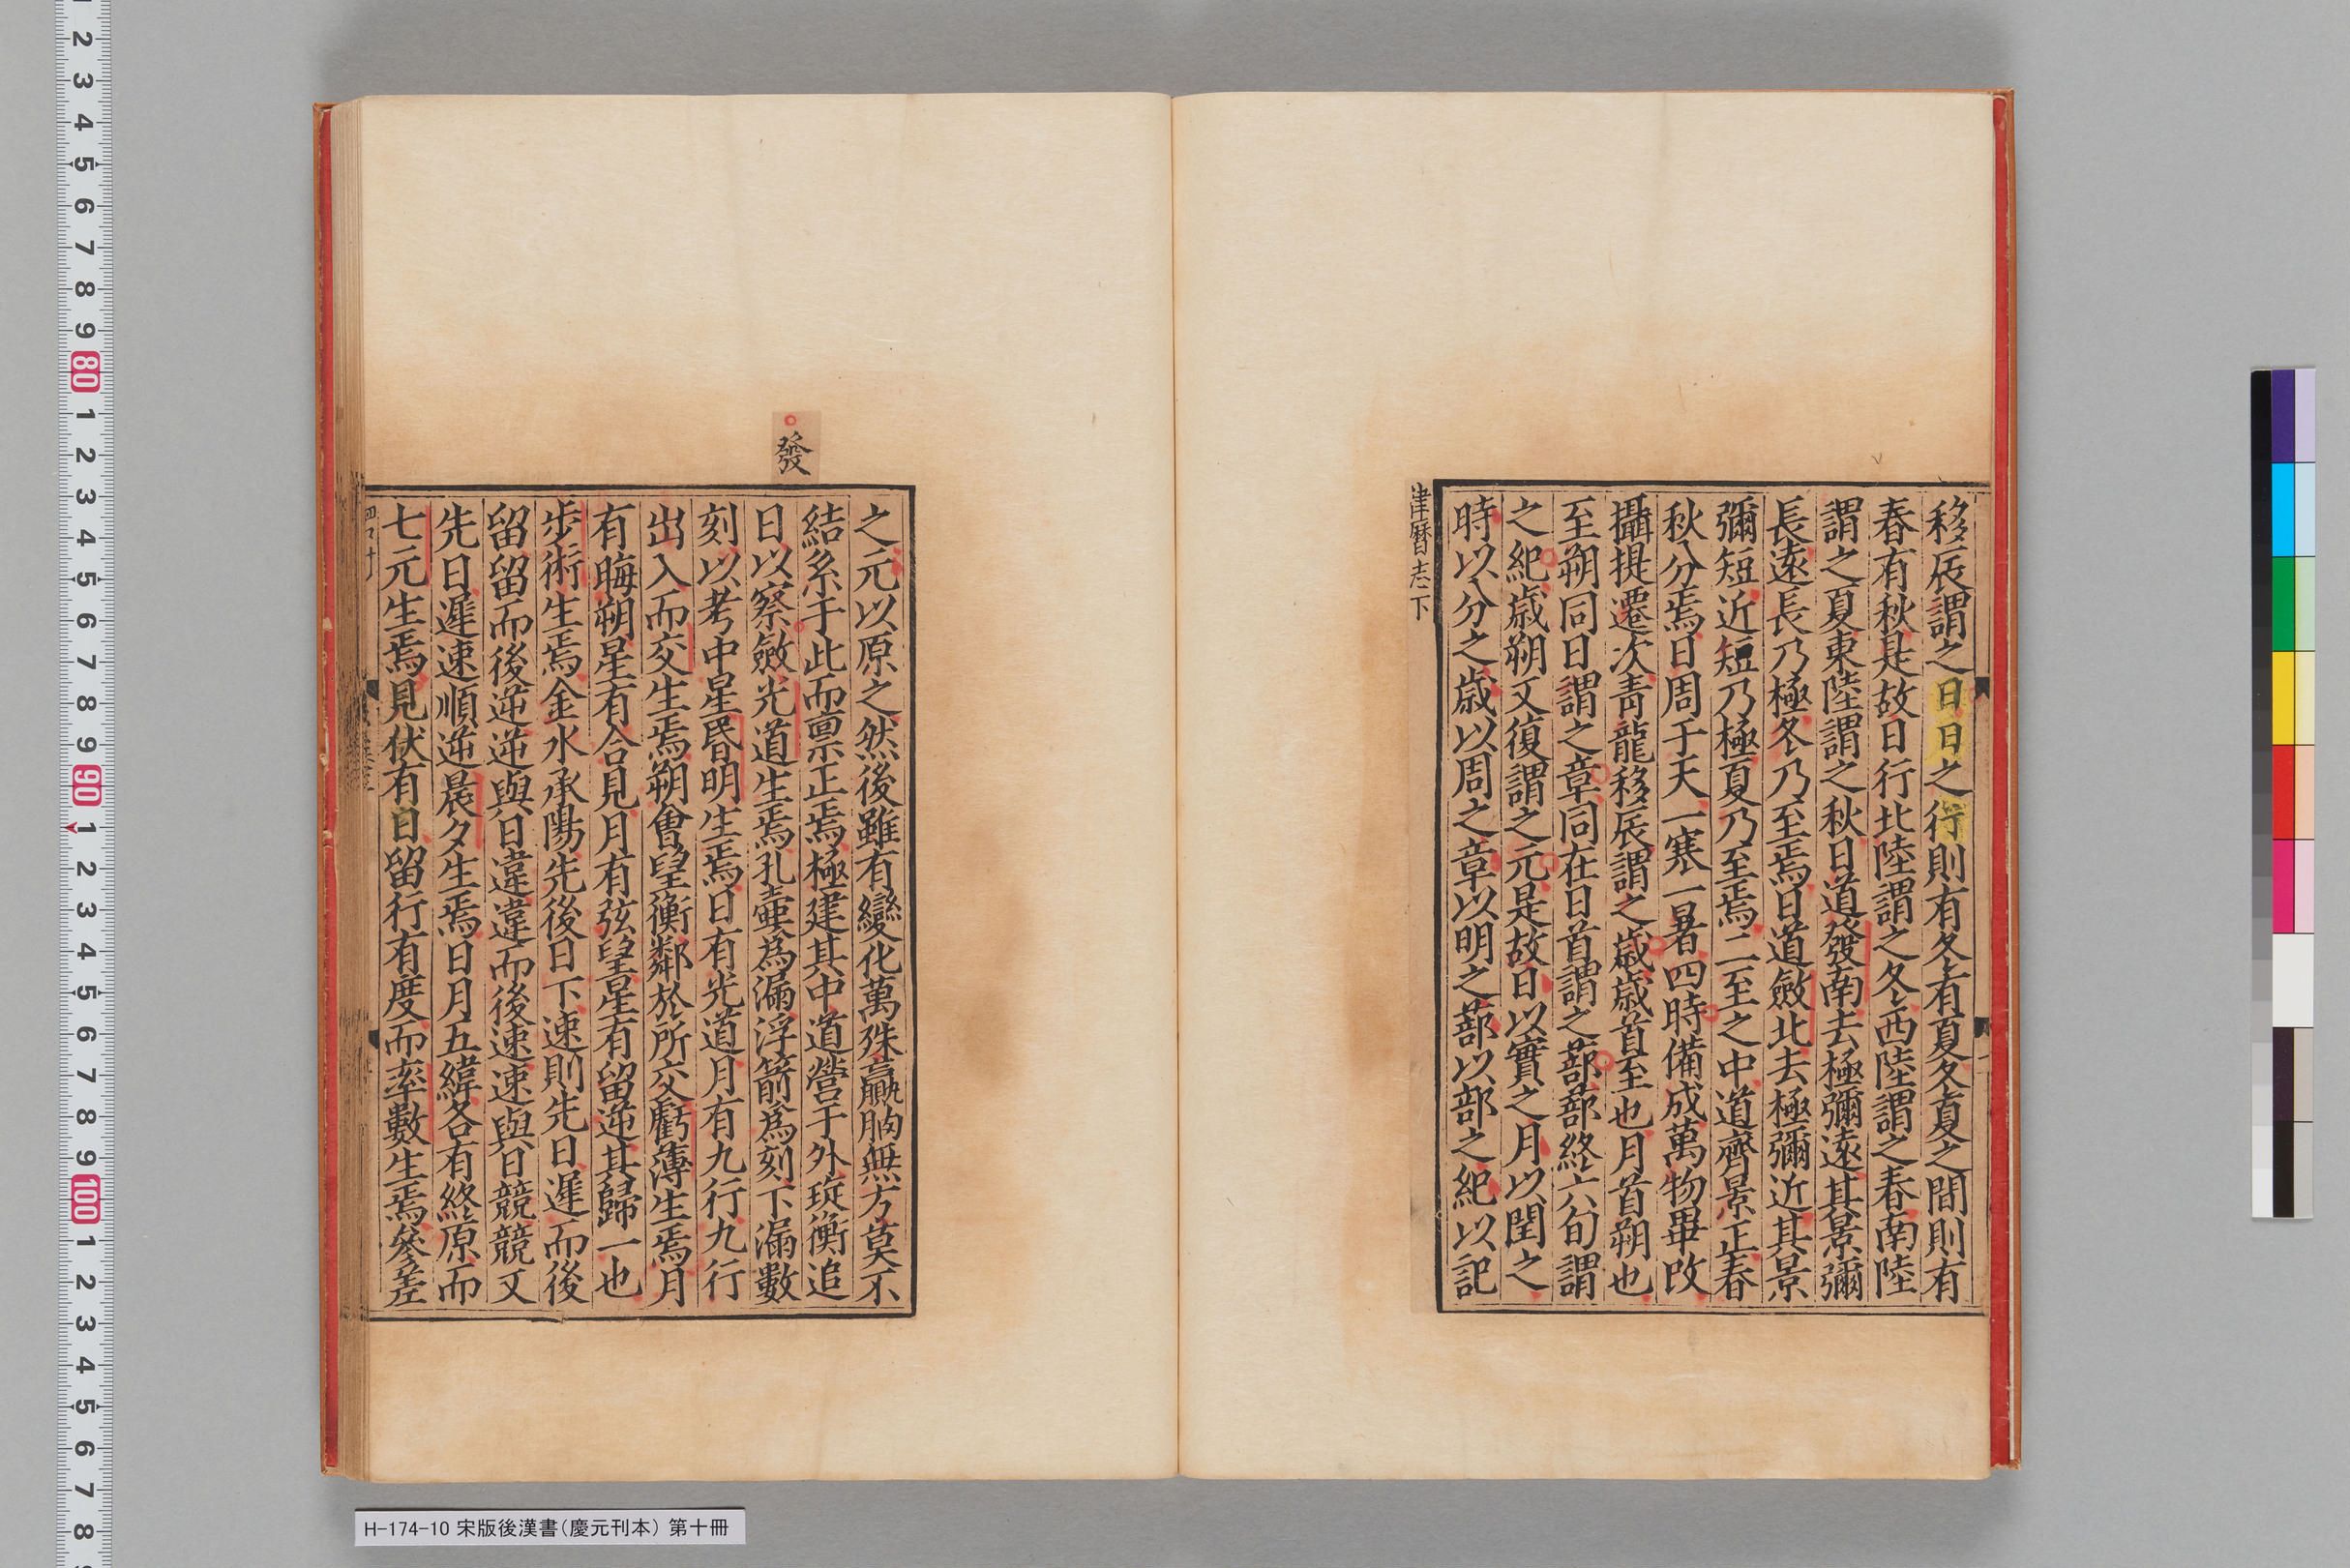 移辰謂之日日之行則有冬有夏冬夏之間則有
春有秋是故日行北陸謂之冬西陸謂之春南陸
謂之夏東陸謂之秋日道發南去極彌遠其景彌
長遠長乃極冬乃至焉日道斂北去極彌近其景
彌短近短乃極夏乃至焉二至之中道齊景正春
秋分焉日周于天一寒一暑四時備成萬物畢改
攝提遷次青龍移辰謂之歲歲首至也月首朔也
至朔同日謂之章同在日首謂之蔀蔀終六旬謂
之紀歲朔又復謂之元是故日以實之月以閏之
時以分之歲以周之章以明之蔀以部之紀以記
律曆志下
發
之元以原之然後雖有變化萬殊贏朒無方莫不
結系于此而禀正焉極建其中道營于外琁衡追
日以察斂光道生焉孔壷爲漏浮箭爲刻下漏數
刻以考中星昏明生焉日有光道月有九行九行
出入而交生焉朔會望衡鄰於所交虧薄生焉月
有晦朔星有合見月有弦望星有留逆其歸一也
步術生焉金水承陽先後日下速則先日遲而後
留留而後逆逆與日違違而後速速與日競競又
先日遲速順逆晨夕生焉日月五緯各有終原而
七元生焉見伏有日留行有度而率數生焉參差
H-174-10 宋版後漢書(慶元刊本) 第十冊
2
3
4
5
6
7
8
9
80
1
2
3
4
5
6
7
8
9
90
1
2
3
4
5
6
7
8
9
100
1
2
3
4
5
6
7
8